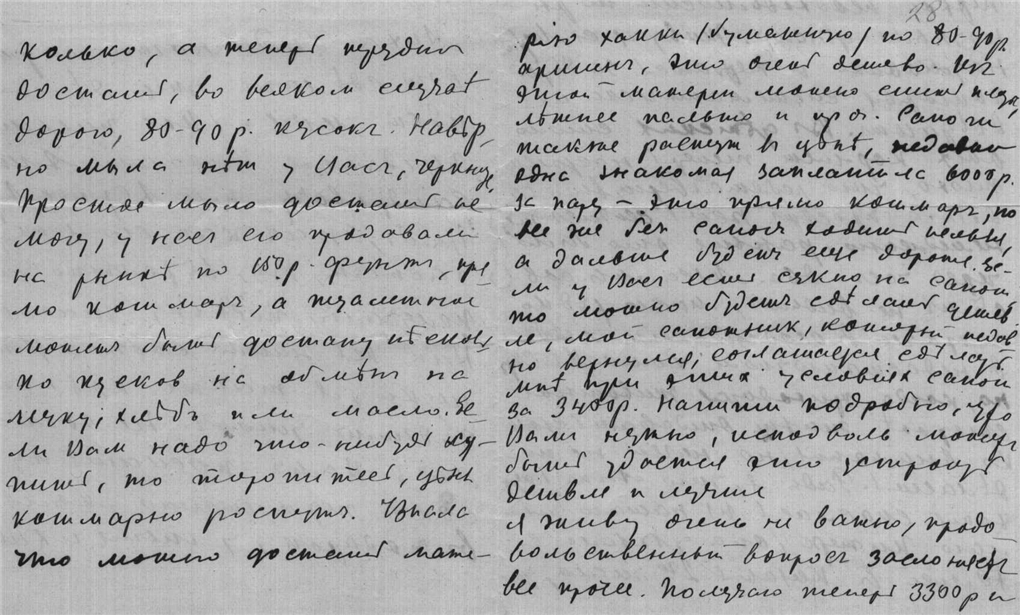 колько, а теперь трудно
достать, во всяком случаѣ
дорого, 80-90 р. кусокъ. Навѣр,
но мыла нѣтъ у Васъ, черкни,
Простое мыло достать не
могу, у насъ его продавали
на рынкѣ по 150 р. фунтъ, пря
мо кошмаръ, а туалетное
можетъ быть достану нѣсколь,
ко кусковъ на обмѣнъ на
муку, хлѣбъ или масло. Ес
ли Вам надо что-нибудь ку-
пить, то торопитесь, цѣны
кошмарно растутъ. Узнала
что можно достать мате-
28
рію хакки (бумажную) по 80-90 р.
аршинъ, это очень дешево. Изъ
этой матеріи можно сшить
лѣтнее пальто и проч. Сапоги
также растутъ въ цѣнѣ, недавно
одна знакомая заплатила 6000 р.
за пару – это прямо кошмаръ, но
все же без сапогъ ходить нельзя,
а дальше будетъ еще дороже. Ес-
ли у Васъ есть сукно на сапоги
то можно будетъ сдѣлать дешев
ле, мой сапожникъ, который недав
но вернулся, соглашается сдѣлать
мнѣ при этихъ условіяхъ сапоги
за 3400 р. Напиши подробно, что
Вамъ нужно, исподволь можетъ
быть удастся это устроить
дешевле и лучше
Я живу очень не важно, продо
вольственный вопросъ заслоняетъ
все прочее. Получаю теперь 3300 р и